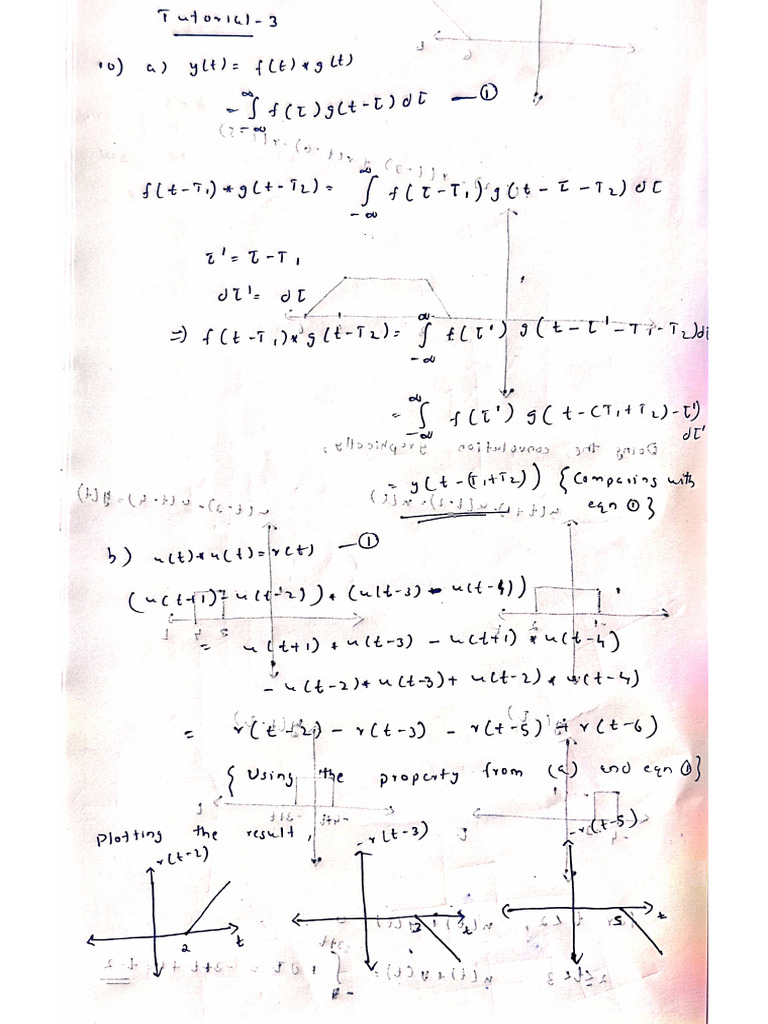 Tutorial-3
10) a) y(t) = f(t) * g(t)
= ∫_{-∞}^{∞} f(τ) g(t-τ) dτ —①
f(t-T₁) * g(t-T₂) = ∫_{-∞}^{∞} f(τ-T₁) g(t-τ-T₂) dτ
τ' = τ-T₁
dτ' = dτ
⇒ f(t-T₁) * g(t-T₂) = ∫_{-∞}^{∞} f(τ') g(t-τ'-T₁-T₂) dτ
= ∫_{-∞}^{∞} f(τ') g(t-(T₁+T₂)-τ')
dτ'
= y(t-(T₁+T₂)) {Comparing with
eqn ①}
b) u(t) * u(t) = r(t) —①
(u(t+1) - u(t-2)) * (u(t-3) - u(t-4))
= u(t+1) * u(t-3) - u(t+1) * u(t-4)
- u(t-2) * u(t-3) + u(t-2) * u(t-4)
= r(t-2) - r(t-3) - r(t-5) + r(t-6)
{Using the property from (a) and eqn ①}
Plotting the result,
r(t-2) -r(t-3) -r(t-5)
2 t 3 t 5 t